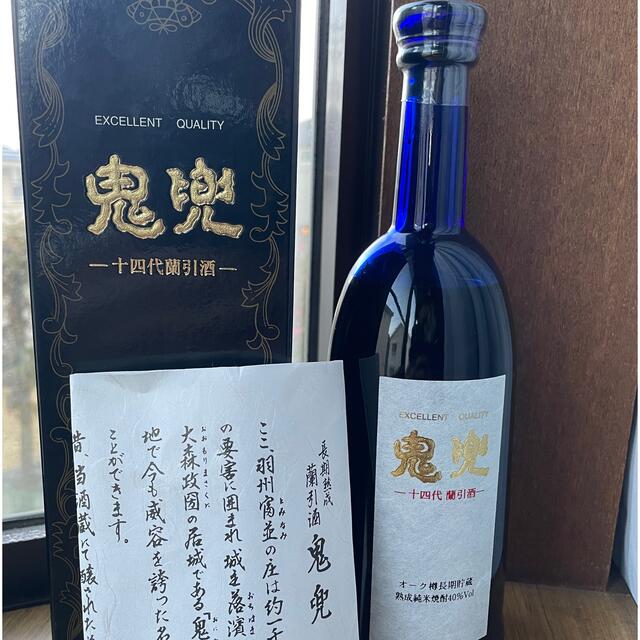 EXCELLENT QUALITY
鬼兜
―十四代蘭引酒―
EXCELLENT QUALITY
鬼兜
―十四代 蘭引酒―
オーク樽長期貯蔵
熟成純米焼酎40%Vol
長期熟成
蘭引酒 鬼兜
ここ、羽州富並の庄は約一千
とみなみ
の要害に囲まれ城を落濱
おちはま
大森政圀の居城である「鬼
おおもりまさくに
地で今も威容を誇った
ことができます。
昔、当酒蔵にて醸された